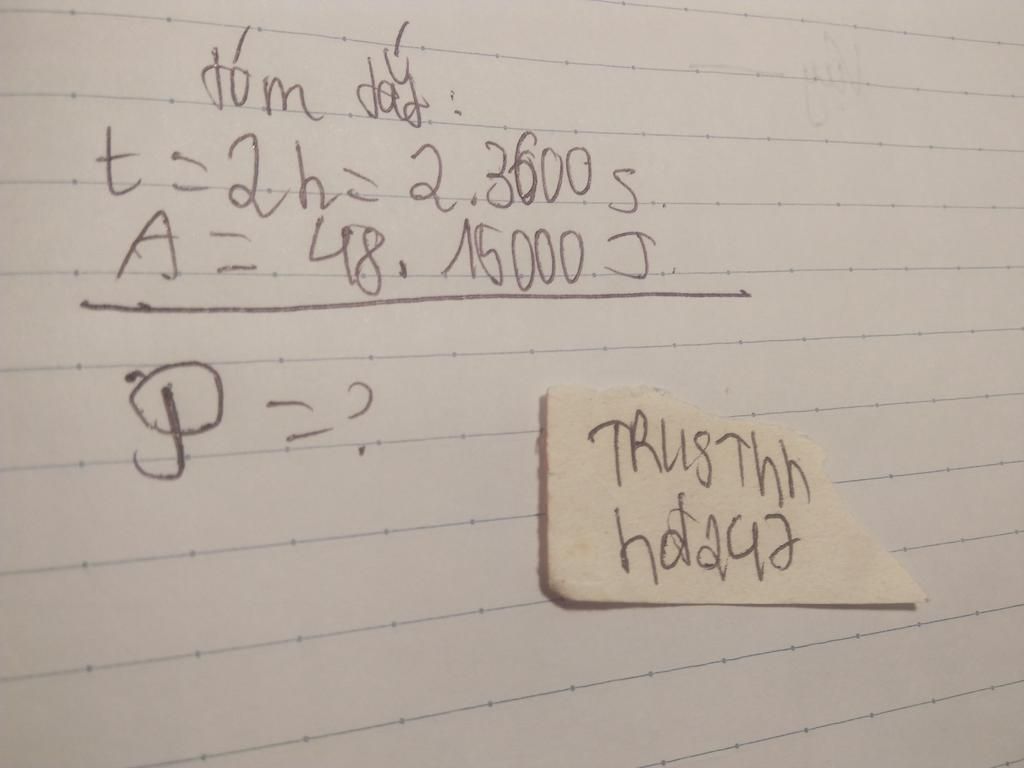 tóm tắt:
t = 2h = 2.3600 s.
A = 48. 15000 J.
P = ?
TRUSThh
hdđ247